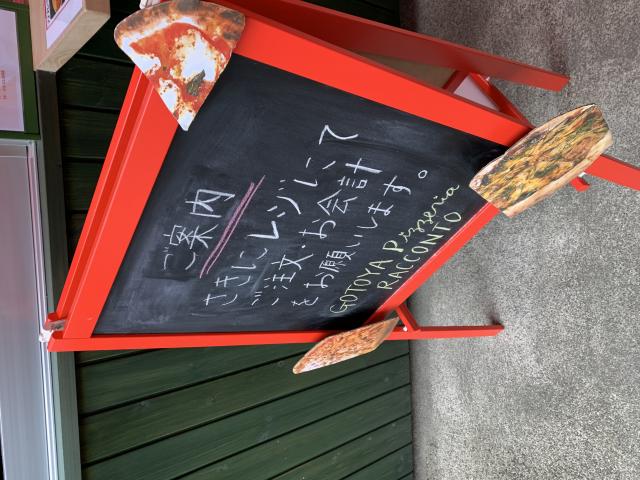 ご案内
さきにレジにて
ご注文・お会計
をお願いします。
GOTOYA Pizzeria
RACCONTO